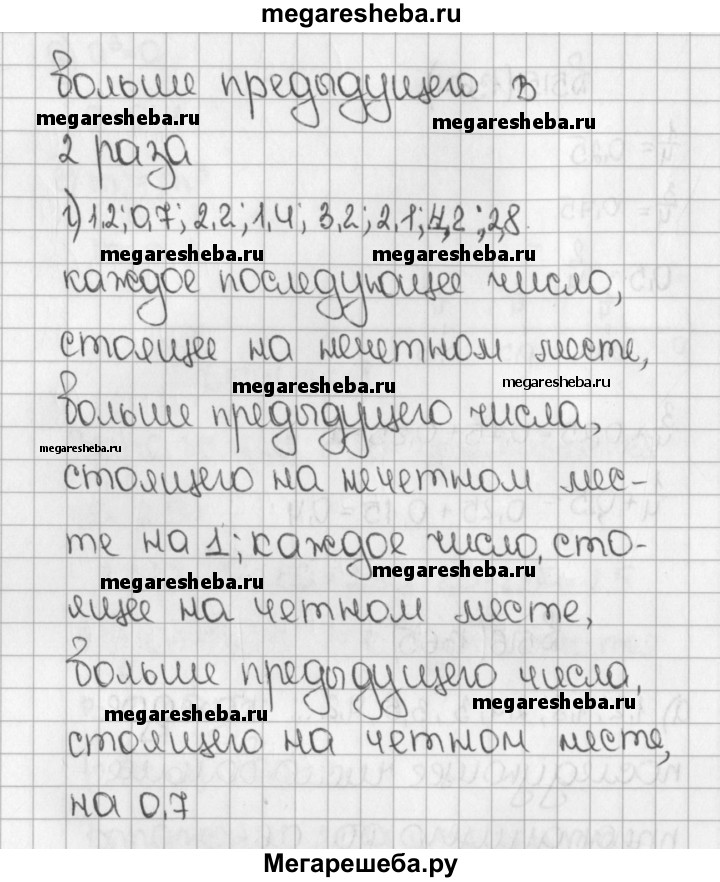 megaresheba.ru
больше предыдущего в
megaresheba.ru
megaresheba.ru
2 раза
г) 1,2; 0,7; 2,2; 1,4; 3,2; 2,1; 4,2; 2,8.
megaresheba.ru
megaresheba.ru
каждое последующее число,
стоящее на нечетном месте,
megaresheba.ru
megaresheba.ru
больше предыдущего числа,
megaresheba.ru
стоящего на нечетном мес-
те на 1; каждое число, сто-
megaresheba.ru
megaresheba.ru
ящее на четном месте,
больше предыдущего числа,
megaresheba.ru
megaresheba.ru
стоящего на четном месте,
на 0,7
Мегарешеба.ру